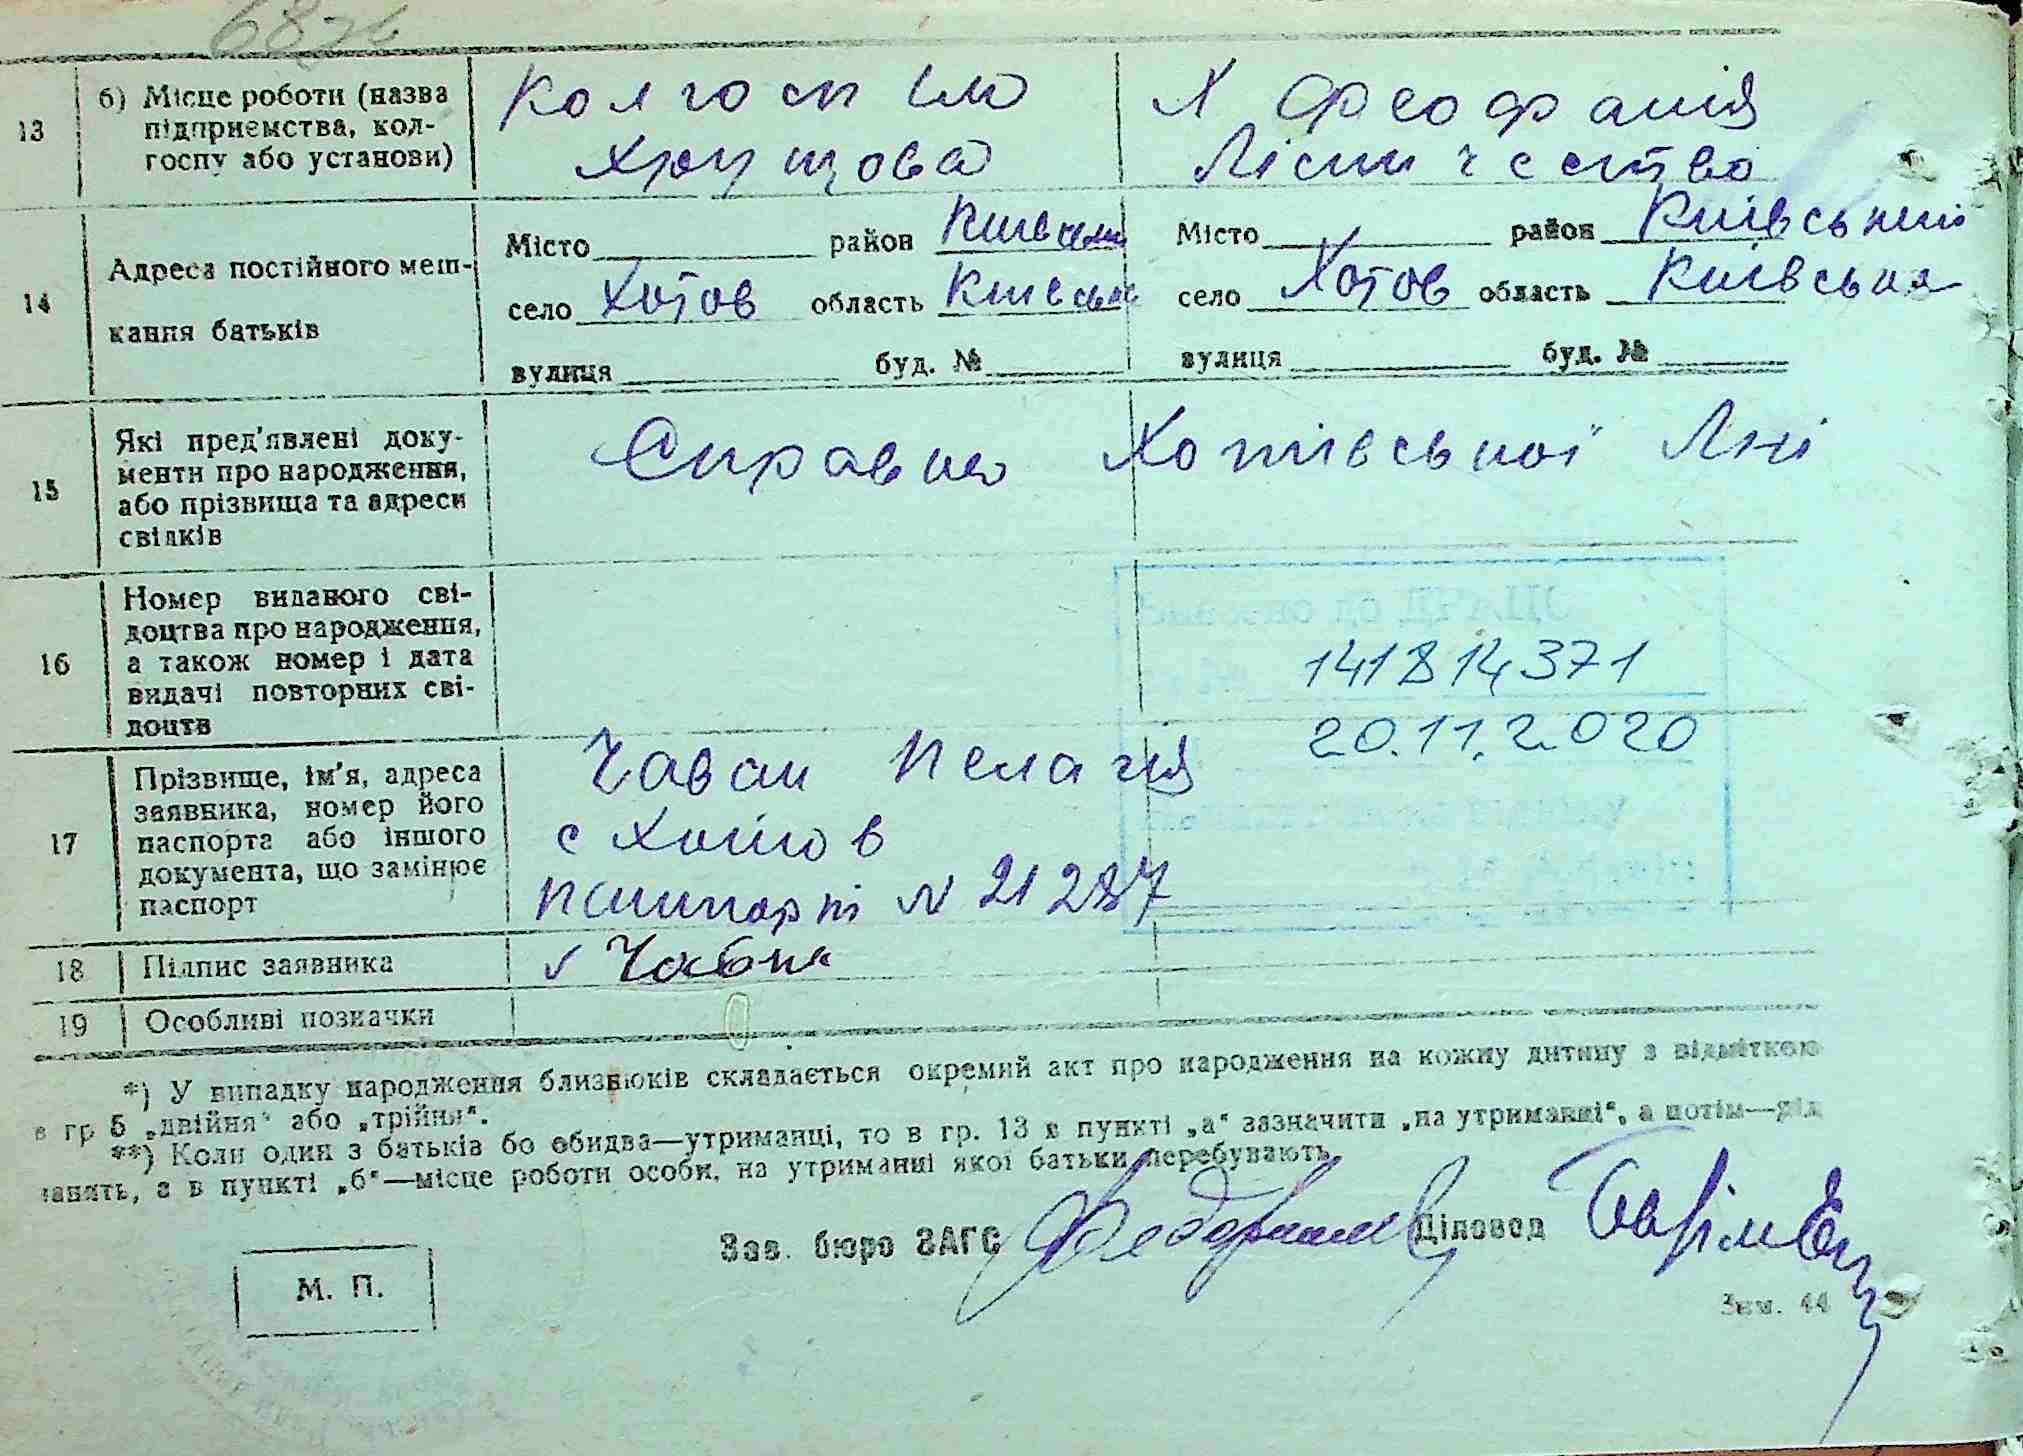 13
б) Місце роботи (назва
підприємства, кол-
госпу або установи)
Колгосп їм
Хрущова
Х Феофанія
Лісничество
14
Адреса постійного меш-
кання батьків
Місто район Київський
село Хотов область Київська
вулиця буд. №
Місто район Київський
село Хотов область Київська
вулиця буд. №
15
Які пред'явлені доку-
менти про народження,
або прізвища та адреси
свідків
Справка Хотівської Лні
16
Номер виданого сві-
доцтва про народження,
а також номер і дата
видачі повторних сві-
доцтв
141814371
20.11.2020
17
Прізвище, ім'я, адреса
заявника, номер його
паспорта або іншого
документа, що замінює
паспорт
Чабан Пелагія
с Хотов
паспорт N 21287
18
Підпис заявника
✓ Чабан
19
Особливі позначки
*) У випадку народження близнюків складається окремий акт про народження на кожну дитину з відміткою
в гр 5 „двійня" або „трійня".
**) Коли один з батьків бо обидва—утриманці, то в гр. 13 в пункті „а" зазначити „на утриманні", а потім—рід
занять, а в пункті „б"—місце роботи особи, на утриманні якої батьки перебувають
Зав. бюро ЗАГС
Діловод
М. П.
Зам. 44